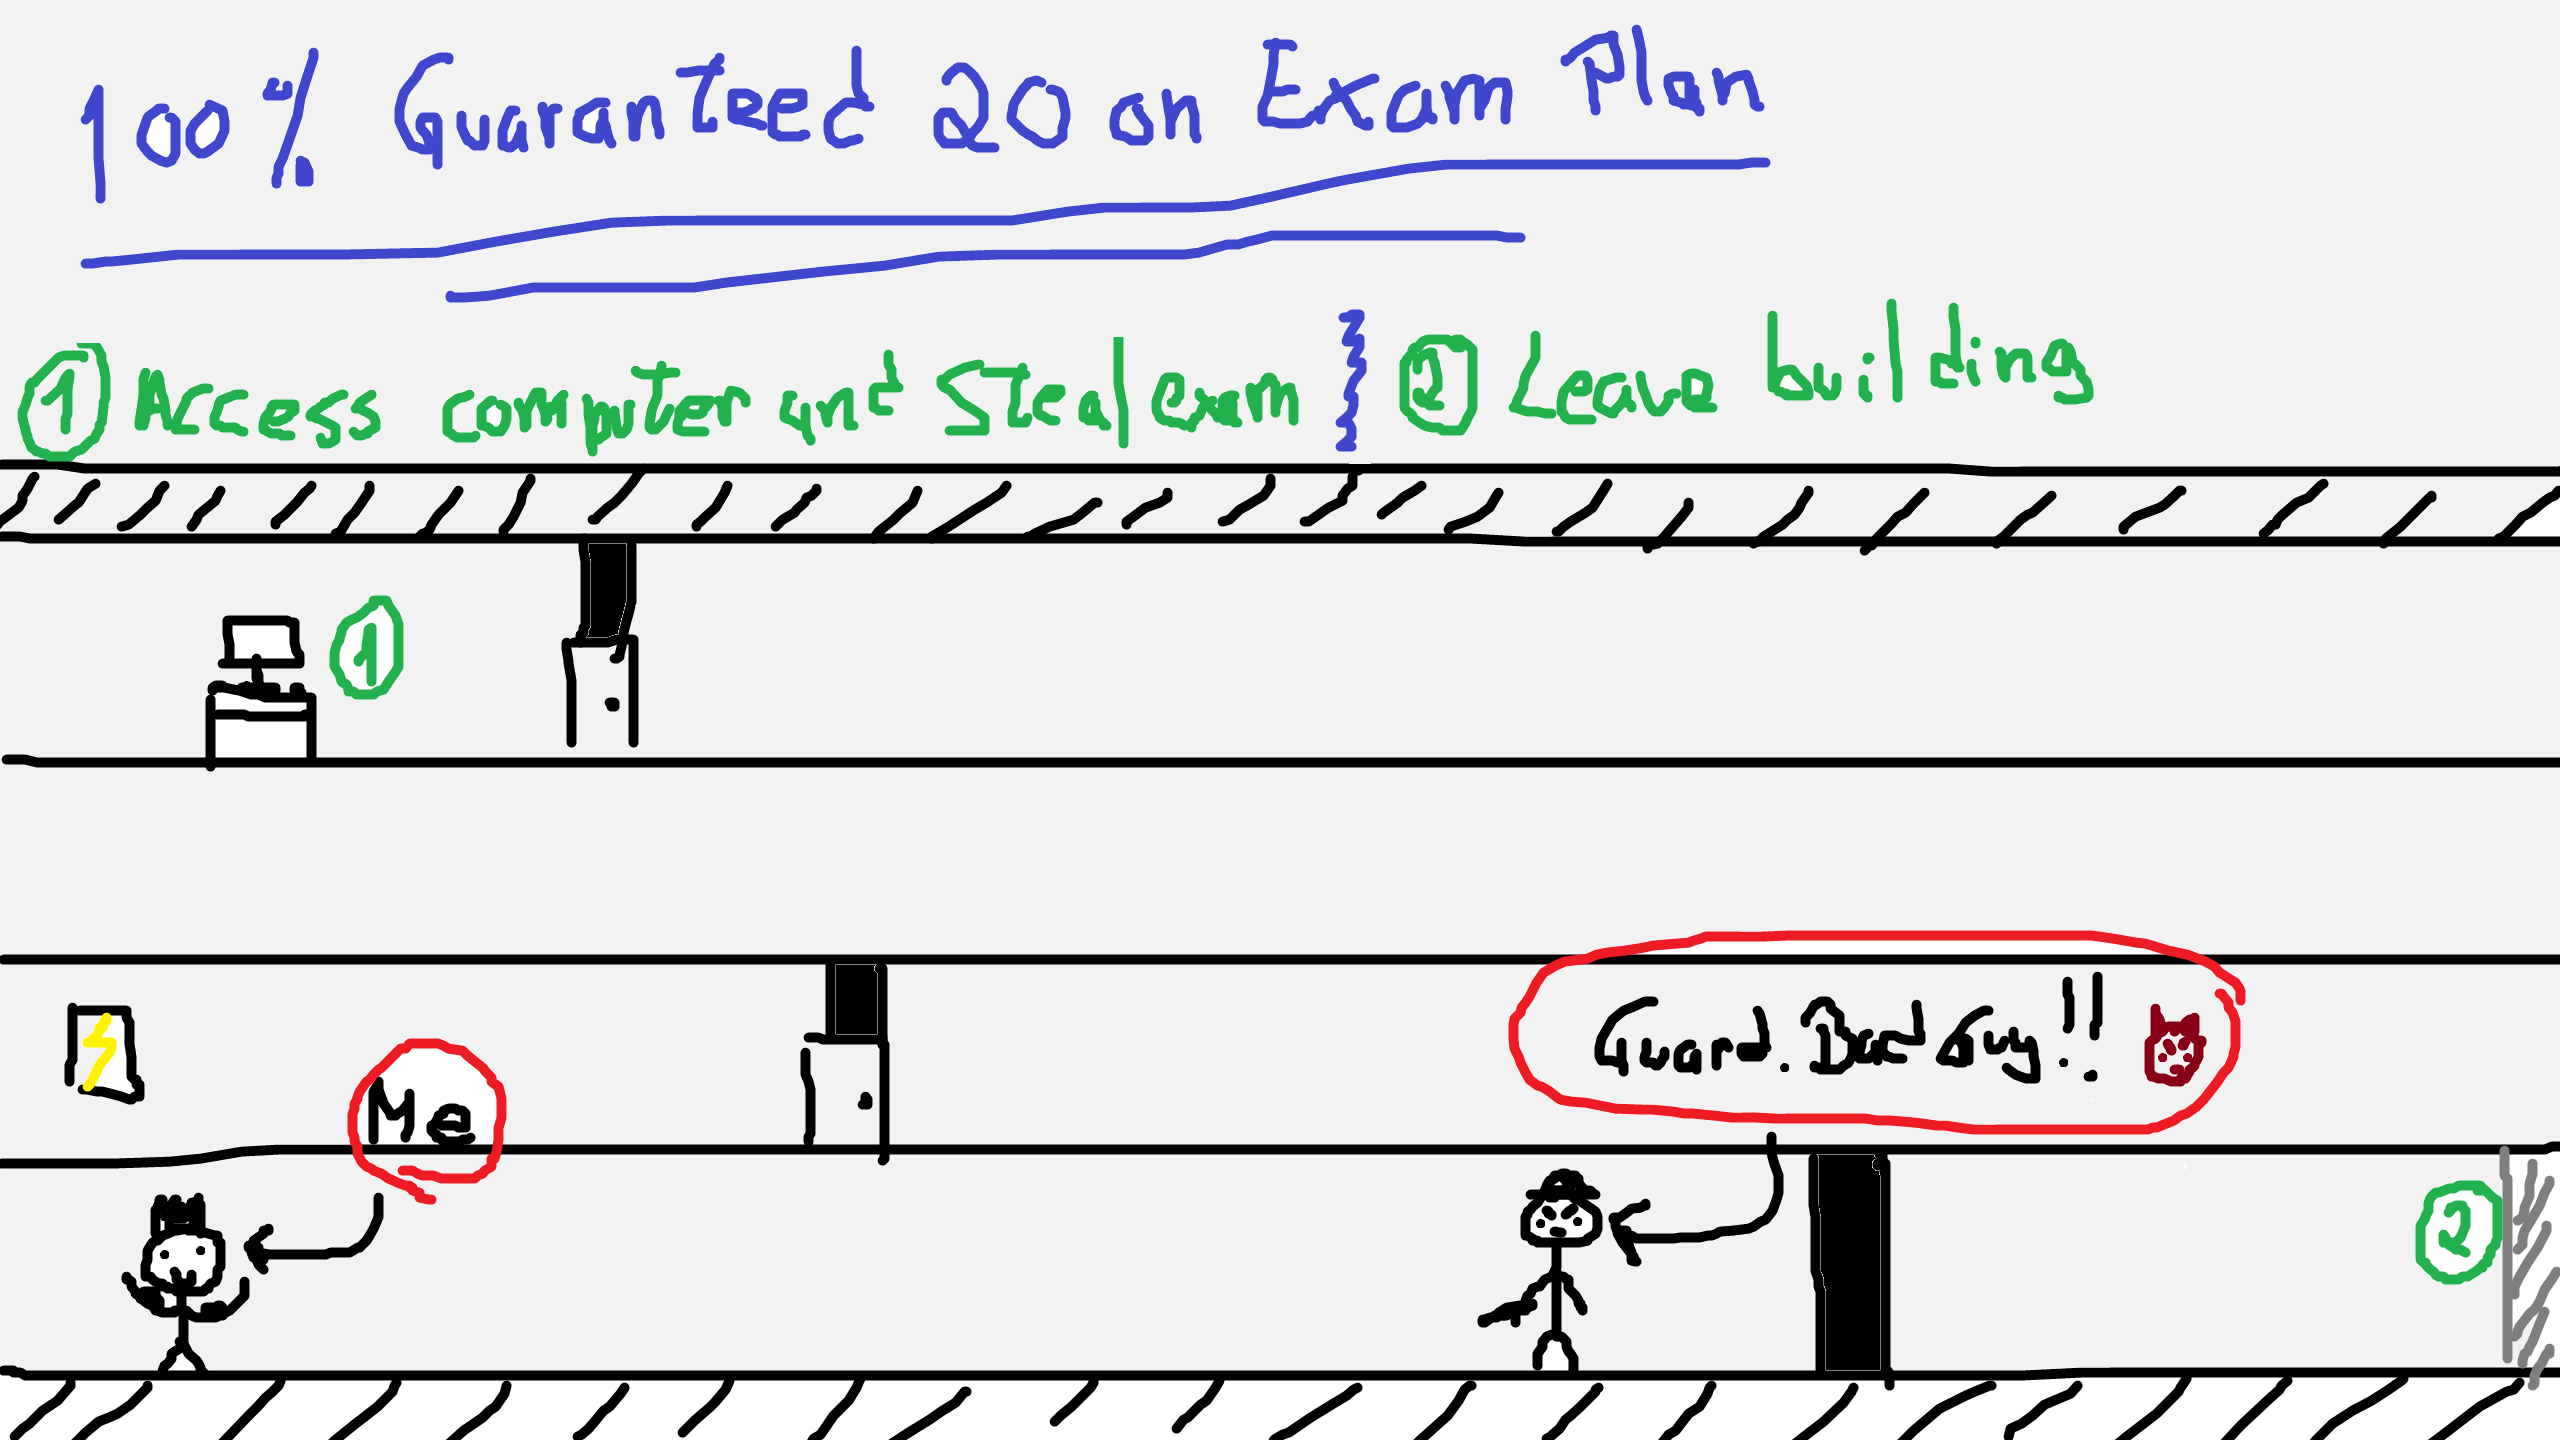 100% Guaranteed 20 on Exam Plan
1 Access computer and Steal exam 2 Leave building
1
Guard. Bad Guy!!
Me
2